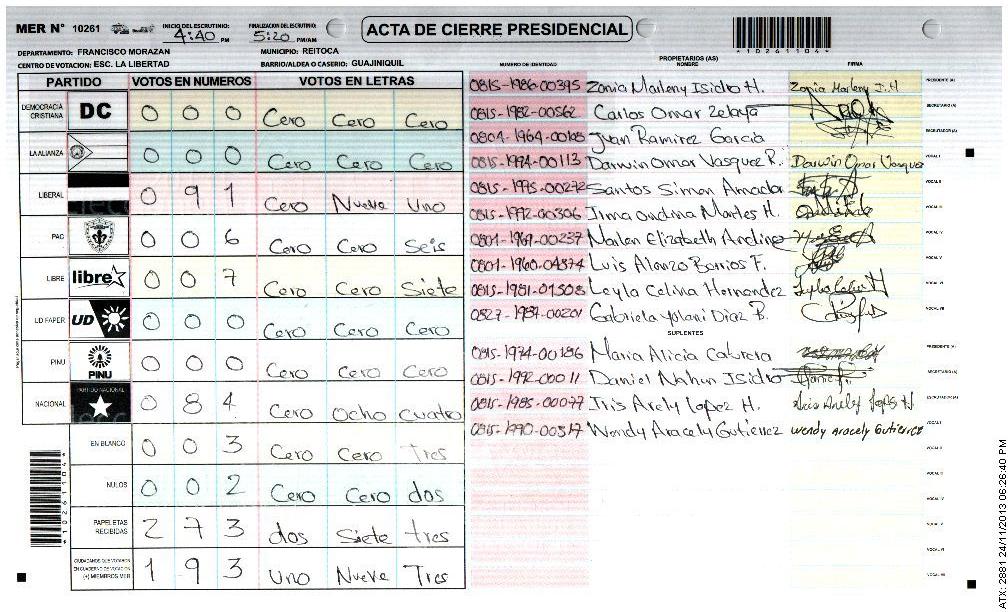 MER N° 10261
INICIO DEL ESCRUTINIO: 4:40 PM
FINALIZACION DEL ESCRUTINIO: 5:20 PM/AM
ACTA DE CIERRE PRESIDENCIAL
*10261104*
DEPARTAMENTO: FRANCISCO MORAZAN
MUNICIPIO: REITOCA
CENTRO DE VOTACION: ESC. LA LIBERTAD
BARRIO/ALDEA O CASERIO: GUAJINIQUIL
PARTIDO VOTOS EN NUMEROS VOTOS EN LETRAS
DEMOCRACIA CRISTIANA DC 0 0 0 Cero Cero Cero
LA ALIANZA 0 0 0 Cero Cero Cero
LIBERAL 0 9 1 Cero Nueve Uno
PAC 0 0 6 Cero Cero Seis
LIBRE libre 0 0 7 Cero Cero Siete
UD FAPER UD 0 0 0 Cero Cero Cero
PINU PINU 0 0 0 Cero Cero Cero
NACIONAL PARTIDO NACIONAL 0 8 4 Cero Ocho cuatro
EN BLANCO 0 0 3 Cero Cero Tres
NULOS 0 0 2 Cero Cero dos
PAPELETAS RECIBIDAS 2 7 3 dos Siete tres
CIUDADANOS QUE VOTARON EN CUADERNO DE VOTACION (+) MIEMBROS MER 1 9 3 Uno Nueve Tres
*10261104*
PROPIETARIOS (AS)
NUMERO DE IDENTIDAD NOMBRE FIRMA
0815-1986-00395 Zonia Marleny Isidro H. Zonia Marleny I.H PRESIDENTE (A)
0815-1982-00562 Carlos Omar Zelaya SECRETARIO (A)
0804-1964-00165 Juan Ramirez Garcia ESCRUTADOR (A)
0815-1974-00113 Darwin Omar Vasquez R. Darwin Omar Vasquez VOCAL I
0815-1975-00272 Santos Simon Amador VOCAL II
0815-1972-00306 Irma Ondina Montes H. VOCAL III
0801-1969-00237 Marlen Elizabeth Andino VOCAL IV
0801-1960-04874 Luis Alonzo Barrios F. VOCAL V
0815-1981-01508 Leyla Celina Hernandez Leyla Celina H VOCAL VI
0827-1987-00201 Gabriela Yolani Diaz B. VOCAL VII
SUPLENTES
0815-1974-00186 Maria Alicia Cabrera PRESIDENTE (A)
0815-1992-00011 Daniel Nahun Isidro SECRETARIO (A)
0815-1985-00077 Iris Arely Lopez H. Iris Arely Lopez H ESCRUTADOR (A)
0815-1990-00517 Wendy Aracely Gutierrez Wendy Aracely Gutierrez VOCAL I
VOCAL II
VOCAL III
VOCAL IV
VOCAL V
VOCAL VI
VOCAL VII
ATX: 2881 24/11/2013 06:26:40 PM